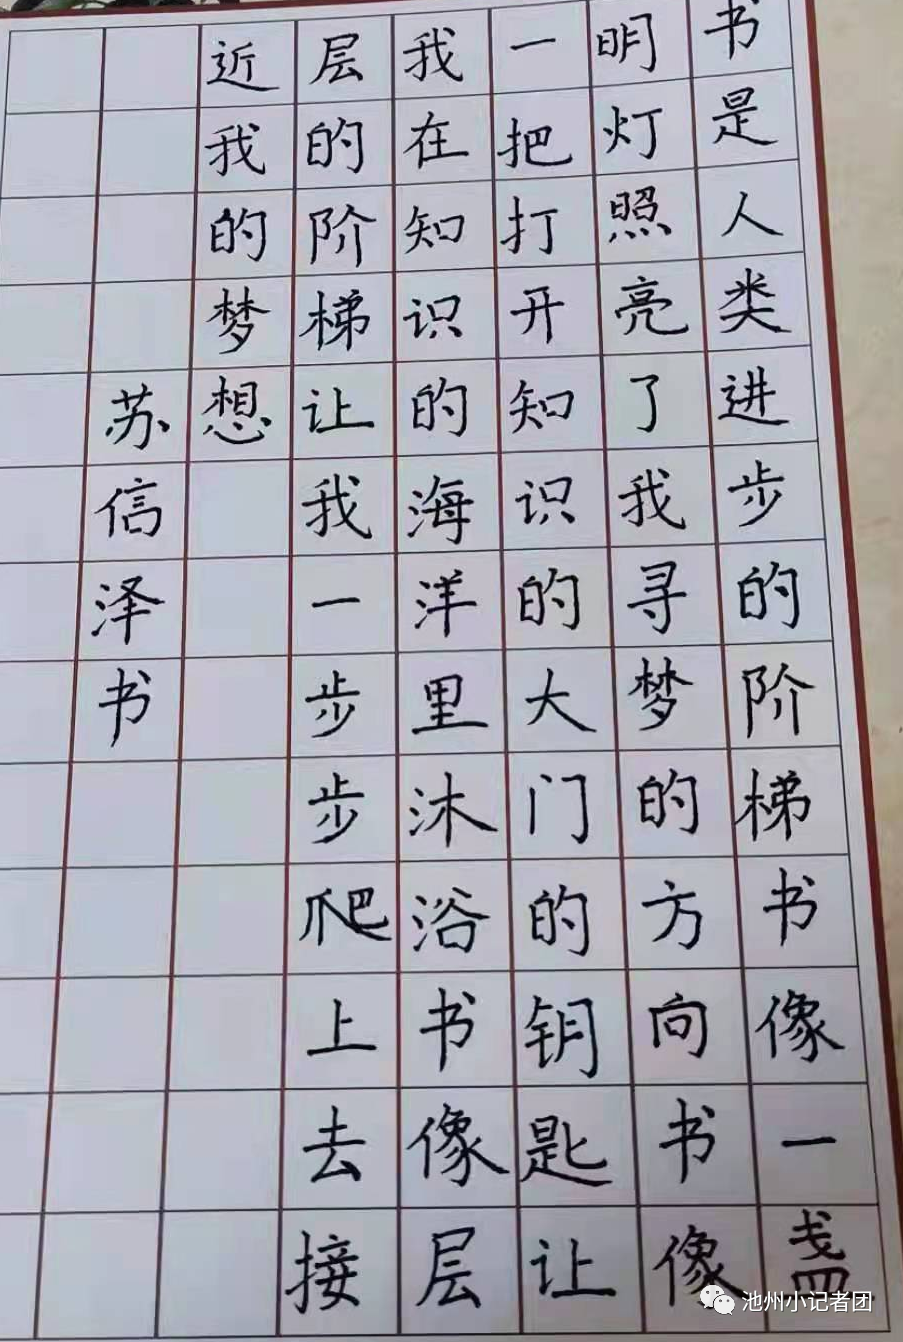 书是人类进步的阶梯书像一盏
明灯照亮了我寻梦的方向书像
一把打开知识的大门的钥匙让
我在知识的海洋里沐浴书像层
层的阶梯让我一步步爬上去接
近我的梦想
苏信泽书
池州小记者团